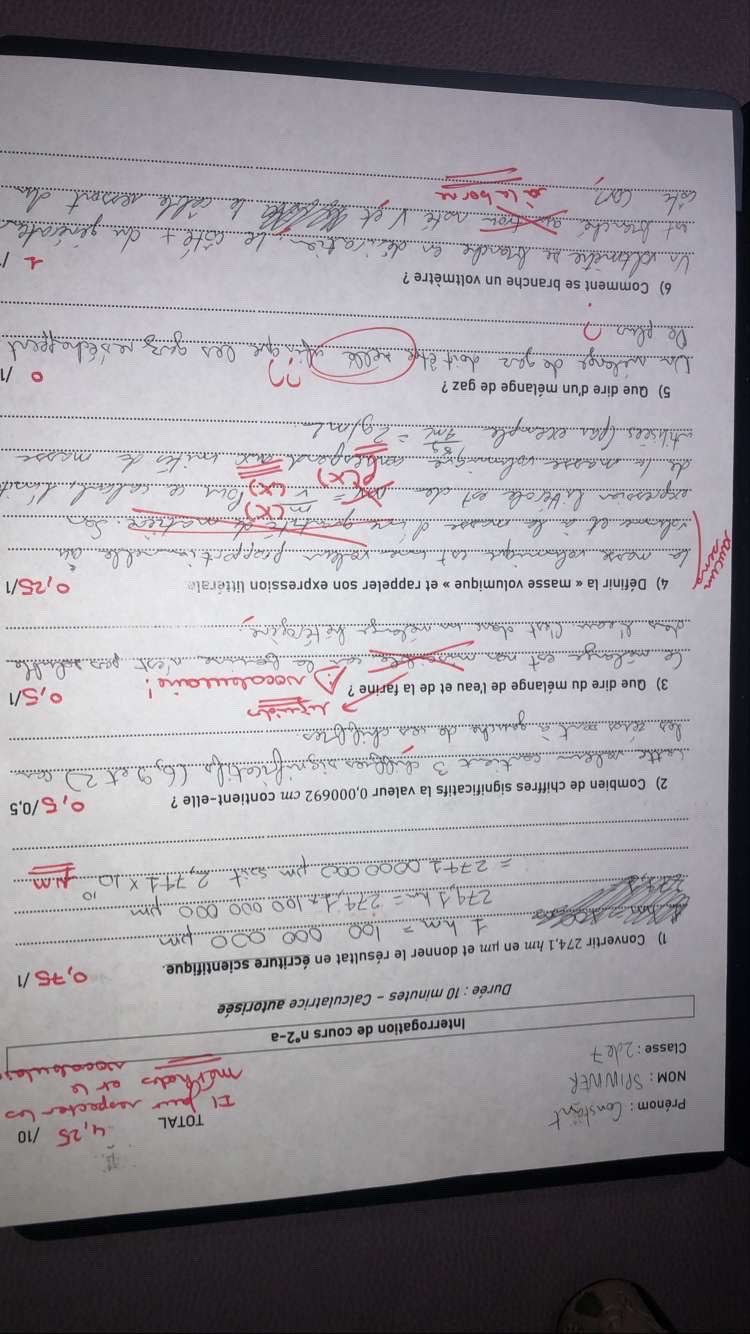 Prénom : Constant
NOM : SPINNER
Classe : 2de 7
TOTAL 4,25 /10
Il faut respecter les
méthodes et le
vocabulaire
Interrogation de cours n°2-a
Durée : 10 minutes – Calculatrice autorisée
1) Convertir 274,1 hm en µm et donner le résultat en écriture scientifique.
0,75 /1
1 hm = 100 000 000 µm
274,1 hm = 274,1 x 100 000 000 µm
= 2741 0000 000 µm soit 2,741 x 10^10 µm
2) Combien de chiffres significatifs la valeur 0,000692 cm contient-elle ?
0,5 /0,5
cette valeur contient 3 chiffres significatifs (6, 9 et 2) car
les zéros sont à gauche de ces chiffres
3) Que dire du mélange du mélange de l'eau et de la farine ?
liquides
vocabulaire !
0,5 /1
Ce mélange est non miscible car la farine n'est pas soluble
dans l'eau. C'est donc un mélange hétérogène.
4) Définir la « masse volumique » et rappeler son expression littérale
0,25 /1
aucun
sens
La masse volumique est une valeur proportionnelle au
volume et à la masse d'une quantité de matière. Son
expression littérale est
m(x)
V(x)
Pour ce calcul,
ρ(x)
de la masse volumique correspond aux unités de masse
utilisées (par exemple = 2g/mL
5) Que dire d'un mélange de gaz ?
0 /1
Un mélange de gaz doit être afin que les gaz
??
De plus ?
6) Comment se branche un voltmètre ?
1 /
Un voltmètre se branche en dérivation. Le côté + du générateur
est branché noté V et le câble ressort du
à la borne
côté COM